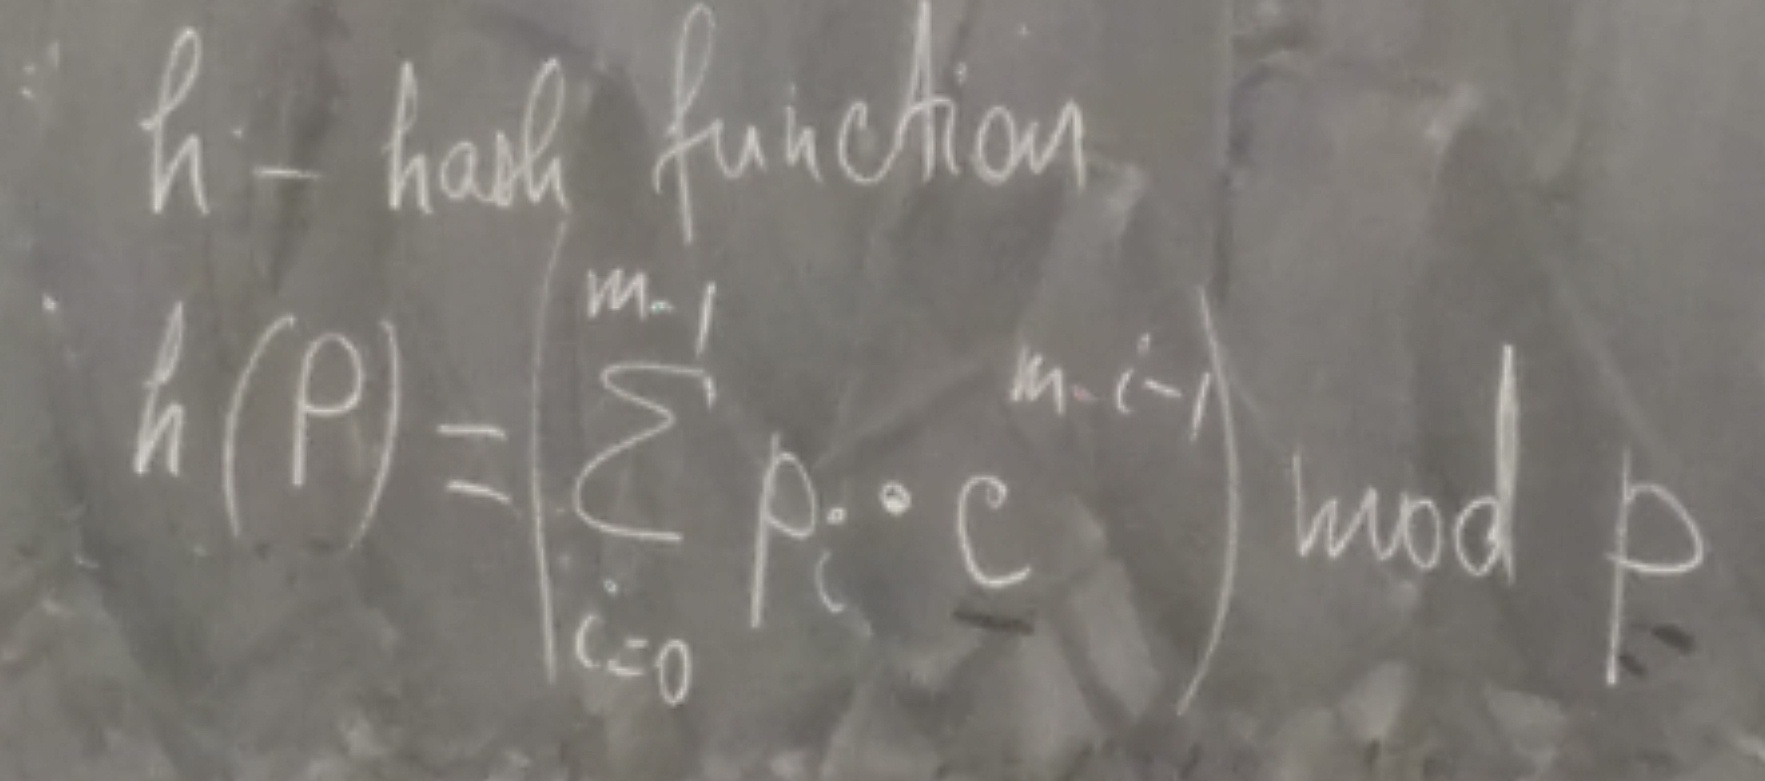 h - hash function
h(P) = (∑_{i=0}^{m-1} p_i · c^{m-i-1}) mod p